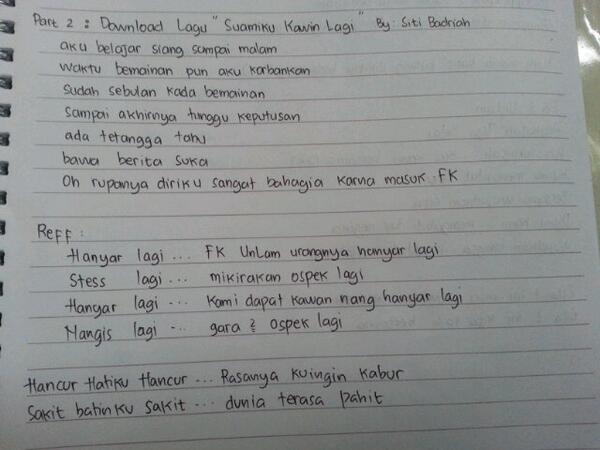 Part 2 : Download Lagu "Suamiku Kawin Lagi" By: Siti Badriah
aku belajar siang sampai malam
waktu bemainan pun aku korbankan
Sudah sebulan kada bemainan
Sampai akhirnya tunggu keputusan
ada tetangga tahu
bawa berita suka
Oh rupanya diriku sangat bahagia karna masuk FK
Reff :
Hanyar lagi ... FK Unlam urangnya hanyar lagi
Stess lagi ... mikirakan ospek lagi
Hanyar lagi ... kami dapat kawan nang hanyar lagi
Nangis lagi ... gara 2 ospek lagi
Hancur Hatiku Hancur ... Rasanya kuingin kabur
Sakit batinku sakit ... dunia terasa pahit